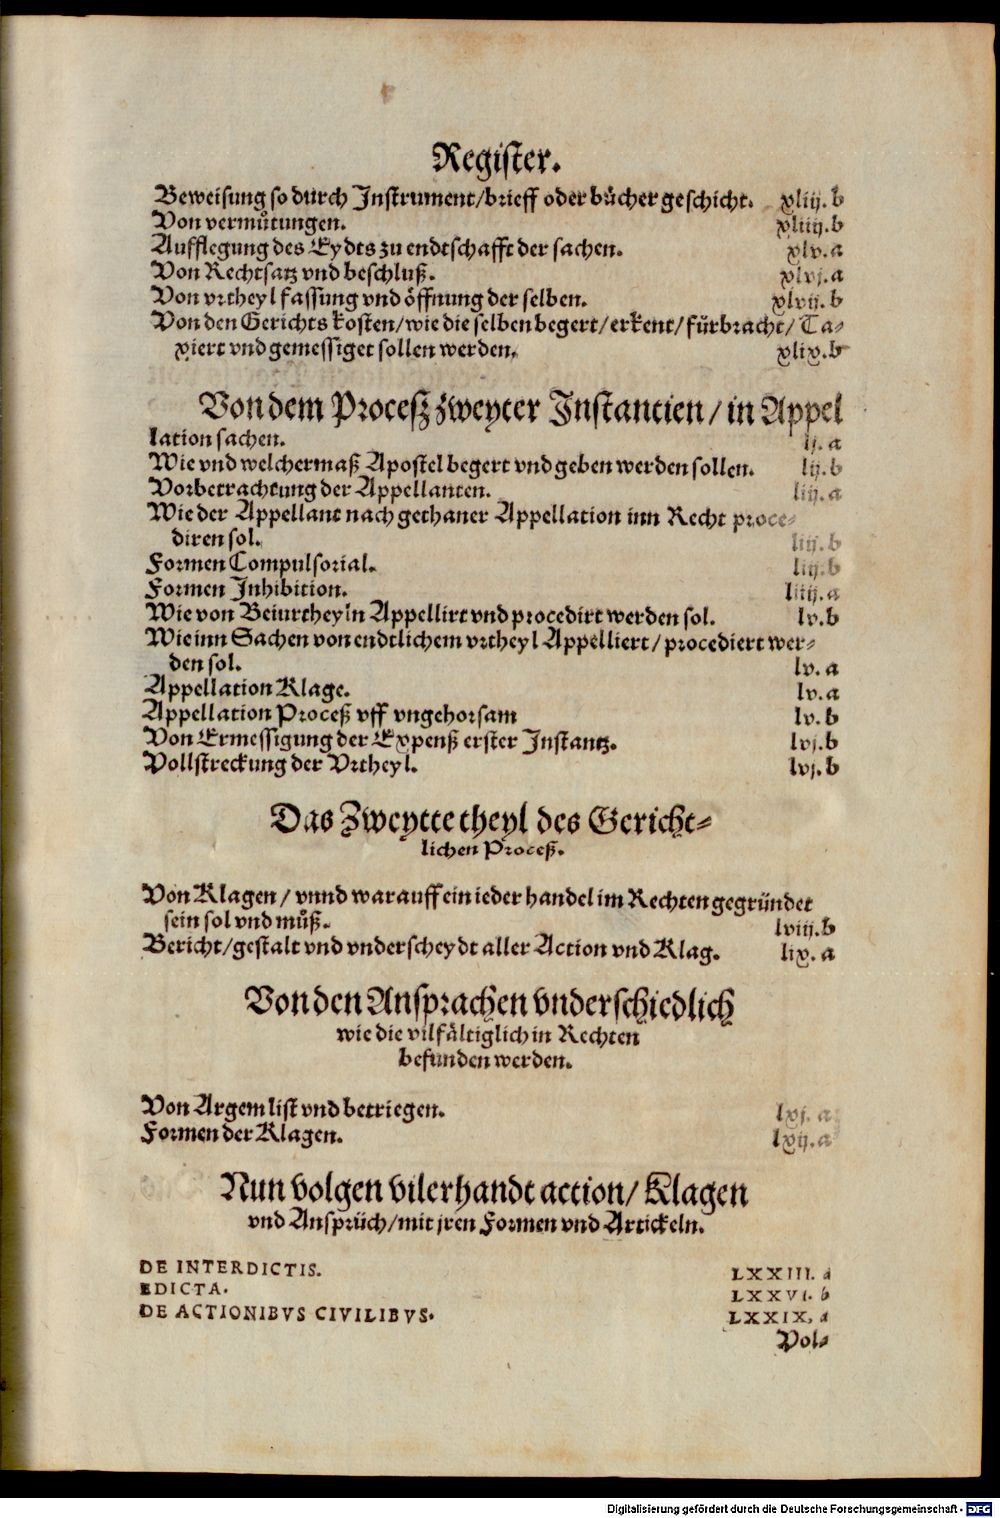 Register.
Beweisung so durch Instrument/brieff oder bücher geschicht. xliij. b
Von vermůtungen. xliiij. b
Aufflegung des Eydts zu endtschafft der sachen. xlv. a
Von Rechtsatz vnd beschluß. xlvj. a
Von vrtheyl fassung vnd öffnung der selben. xlvij. b
Von den Gerichts kosten/wie die selben begert/erkent/fürbracht/Ta⸗
xiert vnd gemessiget sollen werden. xlix. b
Von dem Proceß zweyter Instantien/in Appel
lation sachen. lj. a
Wie vnd welchermaß Apostel begert vnd geben werden sollen. lij. b
Vorbetrachtung der Appellanten. liij. a
Wie der Appellant nach gethaner Appellation inn Recht proce⸗
diren sol. liij. b
Formen Compulsorial. liij. b
Formen Inhibition. liiij. a
Wie von Beiurtheyln Appellirt vnd procedirt werden sol. lv. b
Wie inn Sachen von endtlichem vrtheyl Appelliert/procediert wer⸗
den sol. lv. a
Appellation Klage. lv. a
Appellation Proceß vff vngehorsam lv. b
Von Ermessigung der Expenß erster Instantz. lvj. b
Vollstreckung der Vrtheyl. lvj. b
Das Zweytte theyl des Gericht⸗
lichen Proceß.
Von Klagen/vnnd warauff ein ieder handel im Rechten gegründet
sein sol vnd můß. lviij. b
Bericht/gestalt vnd vnderscheydt aller Action vnd Klag. lix. a
Von den Ansprachen vnderschiedlich
wie die vilfältiglich in Rechten
befunden werden.
Von Argem list vnd betriegen. lxj. a
Formen der Klagen. lxij. a
Nun volgen vilerhandt action/Klagen
vnd Ansprüch/mit jren Formen vnd Artickeln.
DE INTERDICTIS. LXXIII. a
EDICTA. LXXVI. b
DE ACTIONIBVS CIVILIBVS. LXXIX, a
Vol⸗
Digitalisierung gefördert durch die Deutsche Forschungsgemeinschaft - DFG